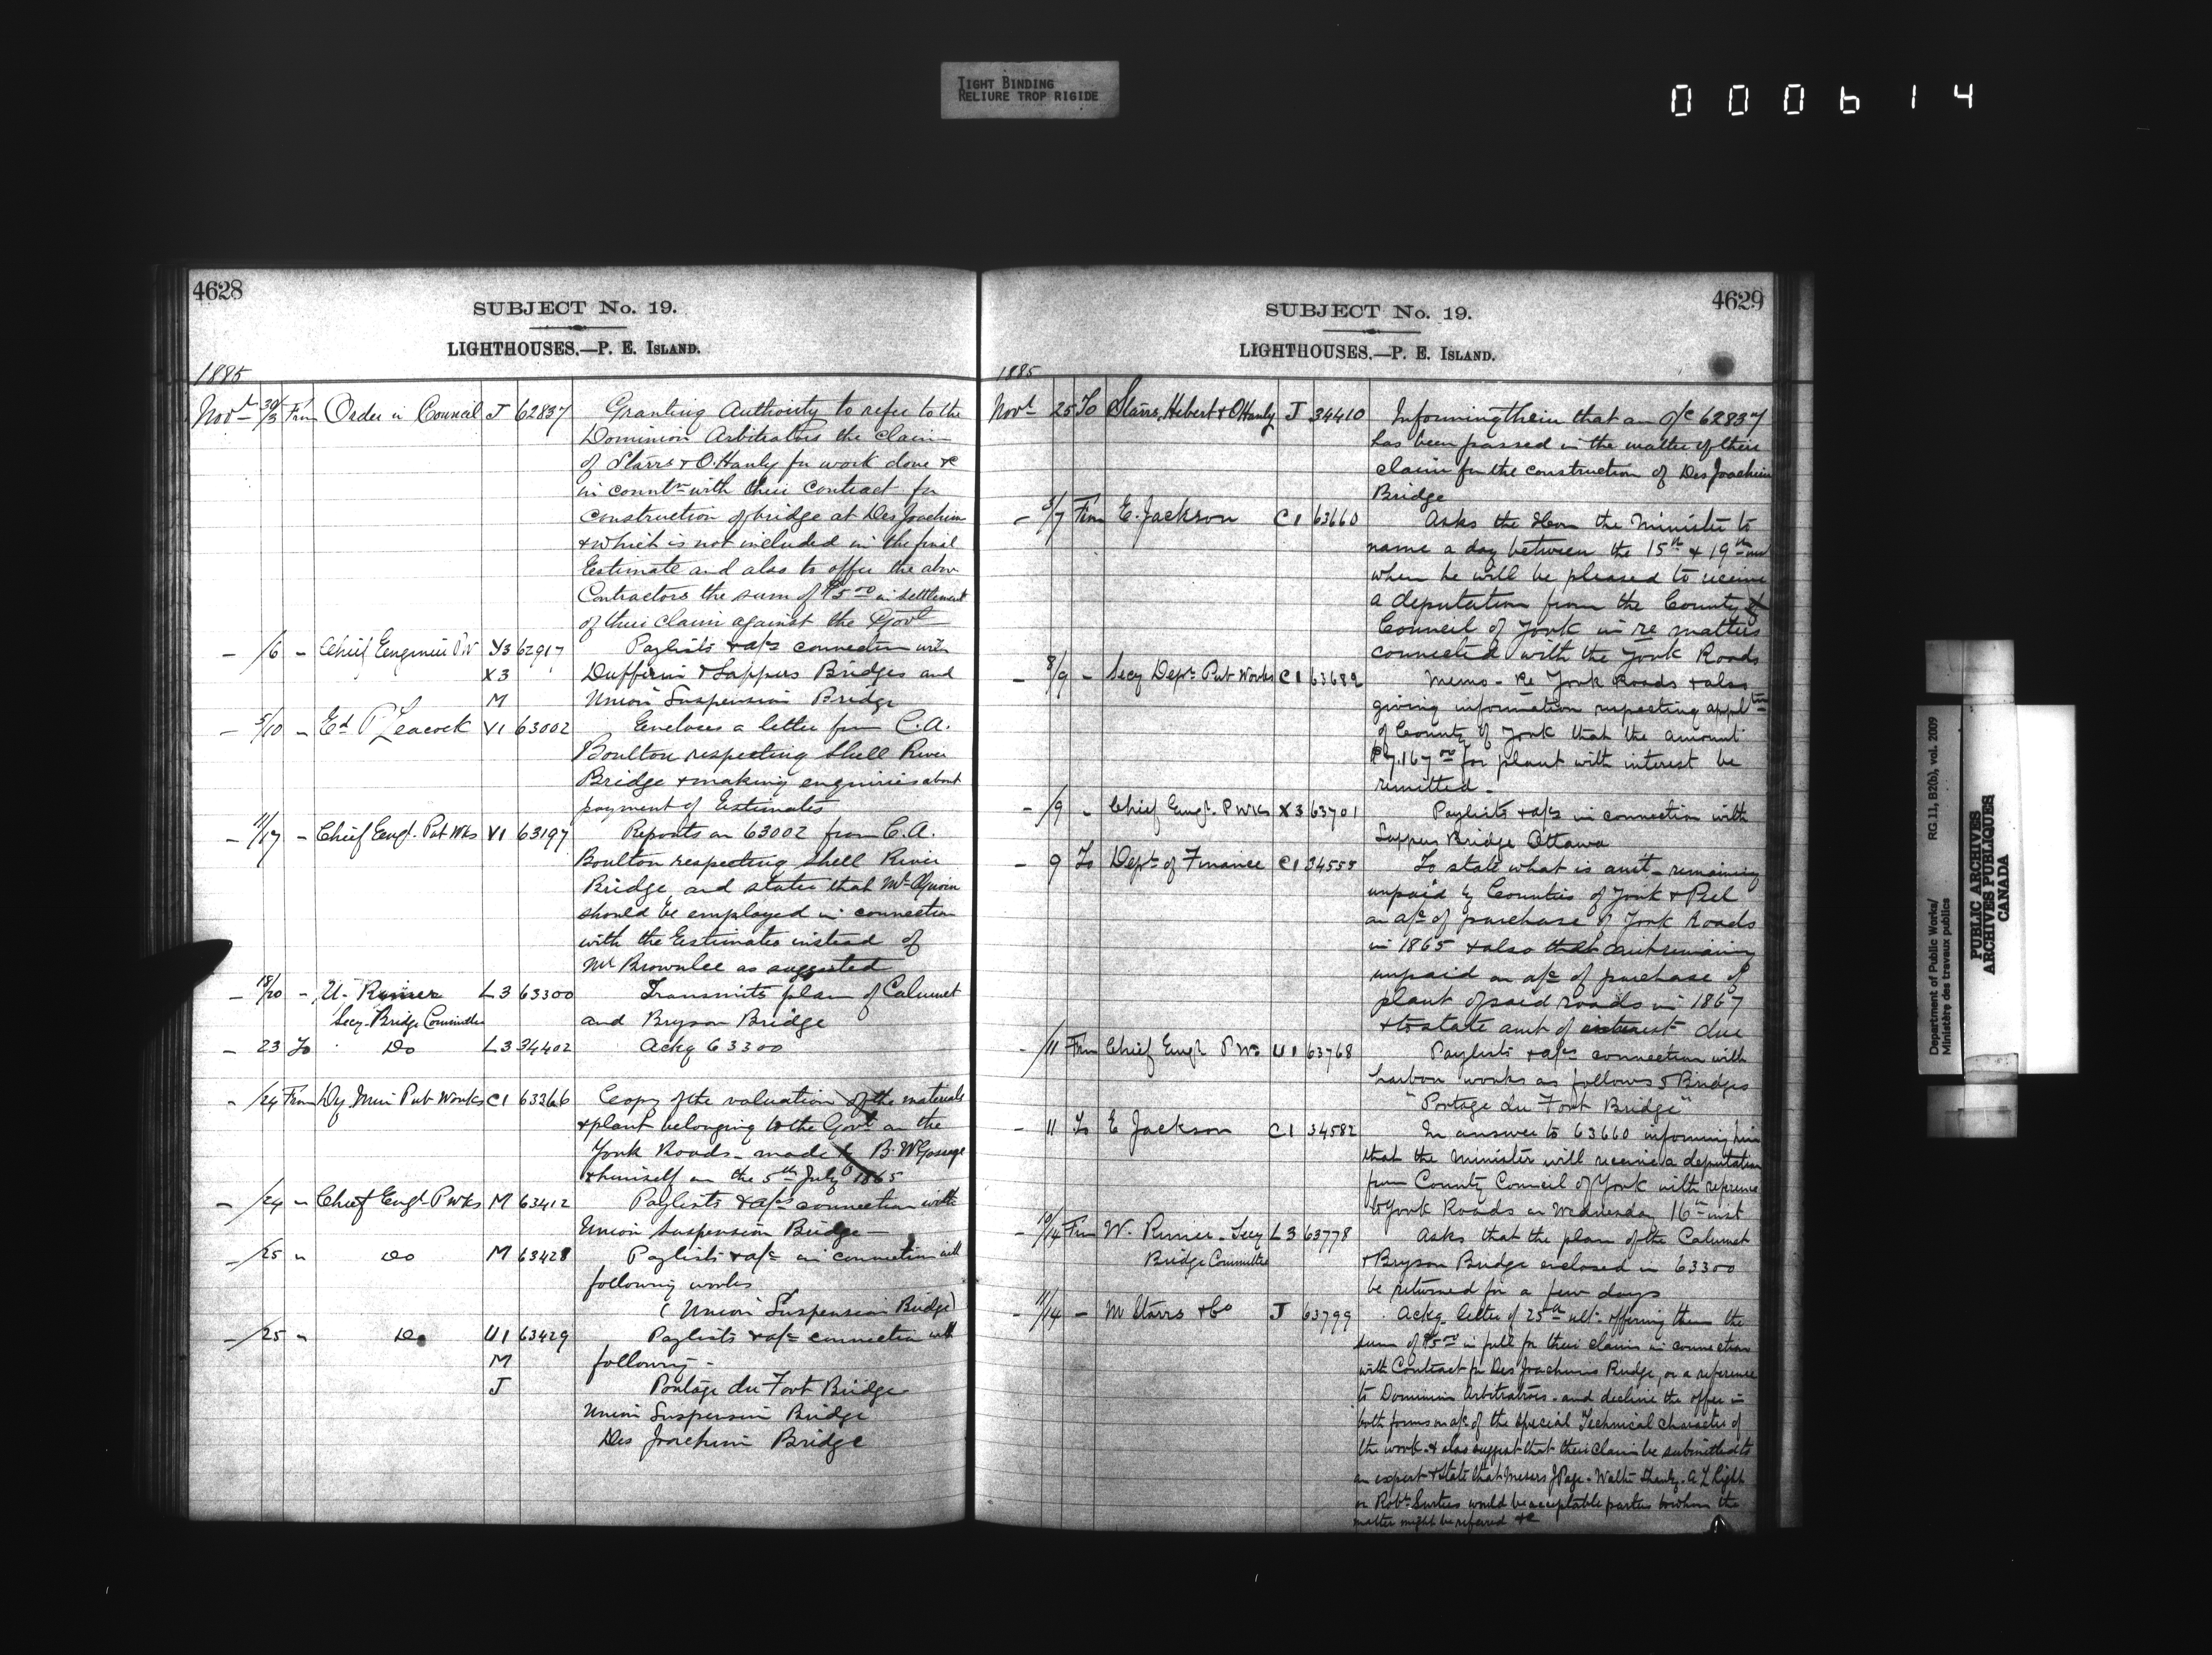 TIGHT BINDING
RELIURE TROP RIGIDE
000614
4628
SUBJECT No. 19.
LIGHTHOUSES.—P. E. ISLAND.
1885
Novr 30/3 From Order in Council J 62837 Granting Authority to refer to the
Dominion Arbitrators the claim
of Starrs & O.Hanly for work done &
in conntn with their contract for
construction of bridge at Des Joachim
& which is not included in the final
Estimate and also to offer the abov
Contractors the sum of in settlement
of their claim against the Govt
- /6 - Chief Engineer PW Y3 62917 Paylists & a/cs connection with
X3 Dufferin & Sappers Bridges and
M Union Suspension Bridge
- 5/10 - Ed P Leacock Y1 63002 Encloses a letter from C.A.
Boulton respecting Shell River
Bridge & making enquiries about
payment of Estimates
- 11/17 - Chief Engr. Pub Wks Y1 63197 Reports on 63002 from C.A.
Boulton respecting Shell River
Bridge and states that Mr
should be employed in connection
with the Estimates instead of
Mr Brownlee as suggested
- 18/20 - L3 63300 Transmits plan of Calumet
Secy. Bridge Committee and Bryson Bridge
- 23 To Do L3 34402 Ackg 63300
- /24 From Dy Min Pub Works C1 63366 Copy of the valuation of the materials
& plant belonging to the Govt on the
York Roads - made by B. W
& himself on the 5th July 1865
- /24 - Chief Engr. P Wks M 63412 Paylists & a/cs connection with
Union Suspension Bridge
- /25 " Do M 63428 Paylists & a/cs in connection with
following works
(Union Suspension Bridge)
- /25 " Do U1 63429 Paylists & a/cs connection with
M following -
J Portage du Fort Bridge
Union Suspension Bridge
Des Joachim Bridge
4629
SUBJECT No. 19.
LIGHTHOUSES.—P. E. ISLAND.
1885
Novr 25 To Starrs, Hebert & OHanly J 34410 Informing them that an O/C 62837
has been passed in the matter of their
claim for the construction of Des Joachim
Bridge
- 5/7 From E. Jackson C1 63660 Asks the Hon the Minister to
name a day between the 15th & 19th inst
when he will be pleased to receive
a deputation from the County
Council of York in re matters
connected with the York Roads
- 8/9 - Secy Dept Pub Works C1 63682 Memo - Re York Roads & also
giving information respecting appltn
of County of York that the amount
$7.167 00 for plant with interest be
remitted -
- /9 - Chief Engr. P Wks X3 63701 Paylists & a/cs in connection with
Sappers Bridge Ottawa
- 9 To Dept of Finance C1 34555 To state what is amt - remaining
unpaid by Counties of York & Peel
on a/c of purchase of York Roads
in 1865 & also that amt remaining
unpaid on a/c of purchase of
plant of said roads in 1867
& to state amt of interest due
- /11 From Chief Engr P Ws U1 63768 Paylists & a/cs connection with
harbour works as follows & Bridges
"Portage du Fort Bridge"
- 11 To E Jackson C1 34582 In answer to 63660 informing him
that the Minister will receive a deputation
from County Council of York with reference
to York Roads on Wednesday 16th inst
- 10/14 From W. Rimer - Secy L3 63778 Asks that the plan of the Calumet
Bridge Committee & Bryson Bridge enclosed in 63300
be returned for a few days
- 11/14 - M Starrs & Co J 63799 Ackg letter of 25th ult. offering them the
sum of in full for their claims in connection
with Contract for Des Joachims Bridge, or a reference
to Dominion Arbitrators - and decline the offer in
both forms on a/c of the special Technical character of
the work - & also suggest that their claim be submitted to
an expert & state that Messrs J Page - Walter Shanly - A L Light
or Robt Surtees would be acceptable parties to whom the
matter might be referred &c
Department of Public Works/
Ministère des travaux publics
RG 11, B2(b), vol. 2009
PUBLIC ARCHIVES
ARCHIVES PUBLIQUES
CANADA